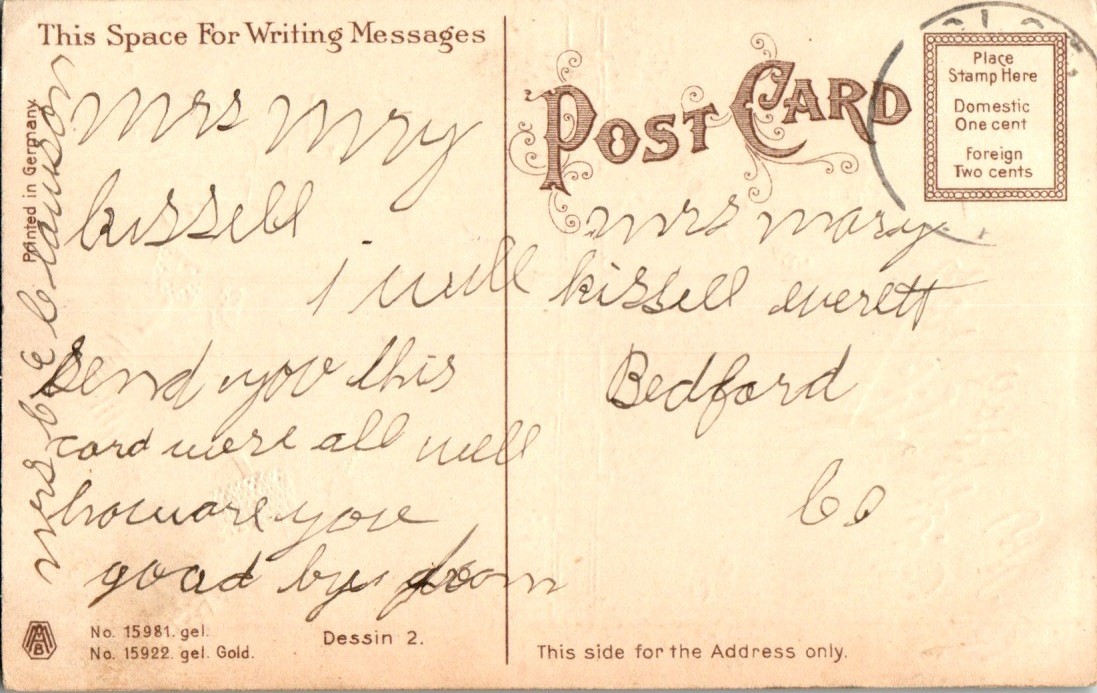 This Space For Writing Messages
Printed in Germany
mrs mry
kissell
i will
send you this
card were all well
how are you
good by from
mrs
Clawson
No. 15981. gel.
No. 15922. gel. Gold.
Dessin 2.
POST CARD
Place
Stamp Here
Domestic
One cent
Foreign
Two cents
mrs mary
kissell everett
Bedford
Co
This side for the Address only.